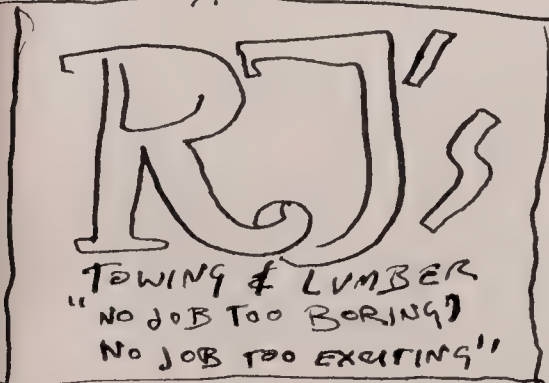 RJ's
TOWING & LUMBER
"NO JOB TOO BORING,
NO JOB TOO EXCITING"